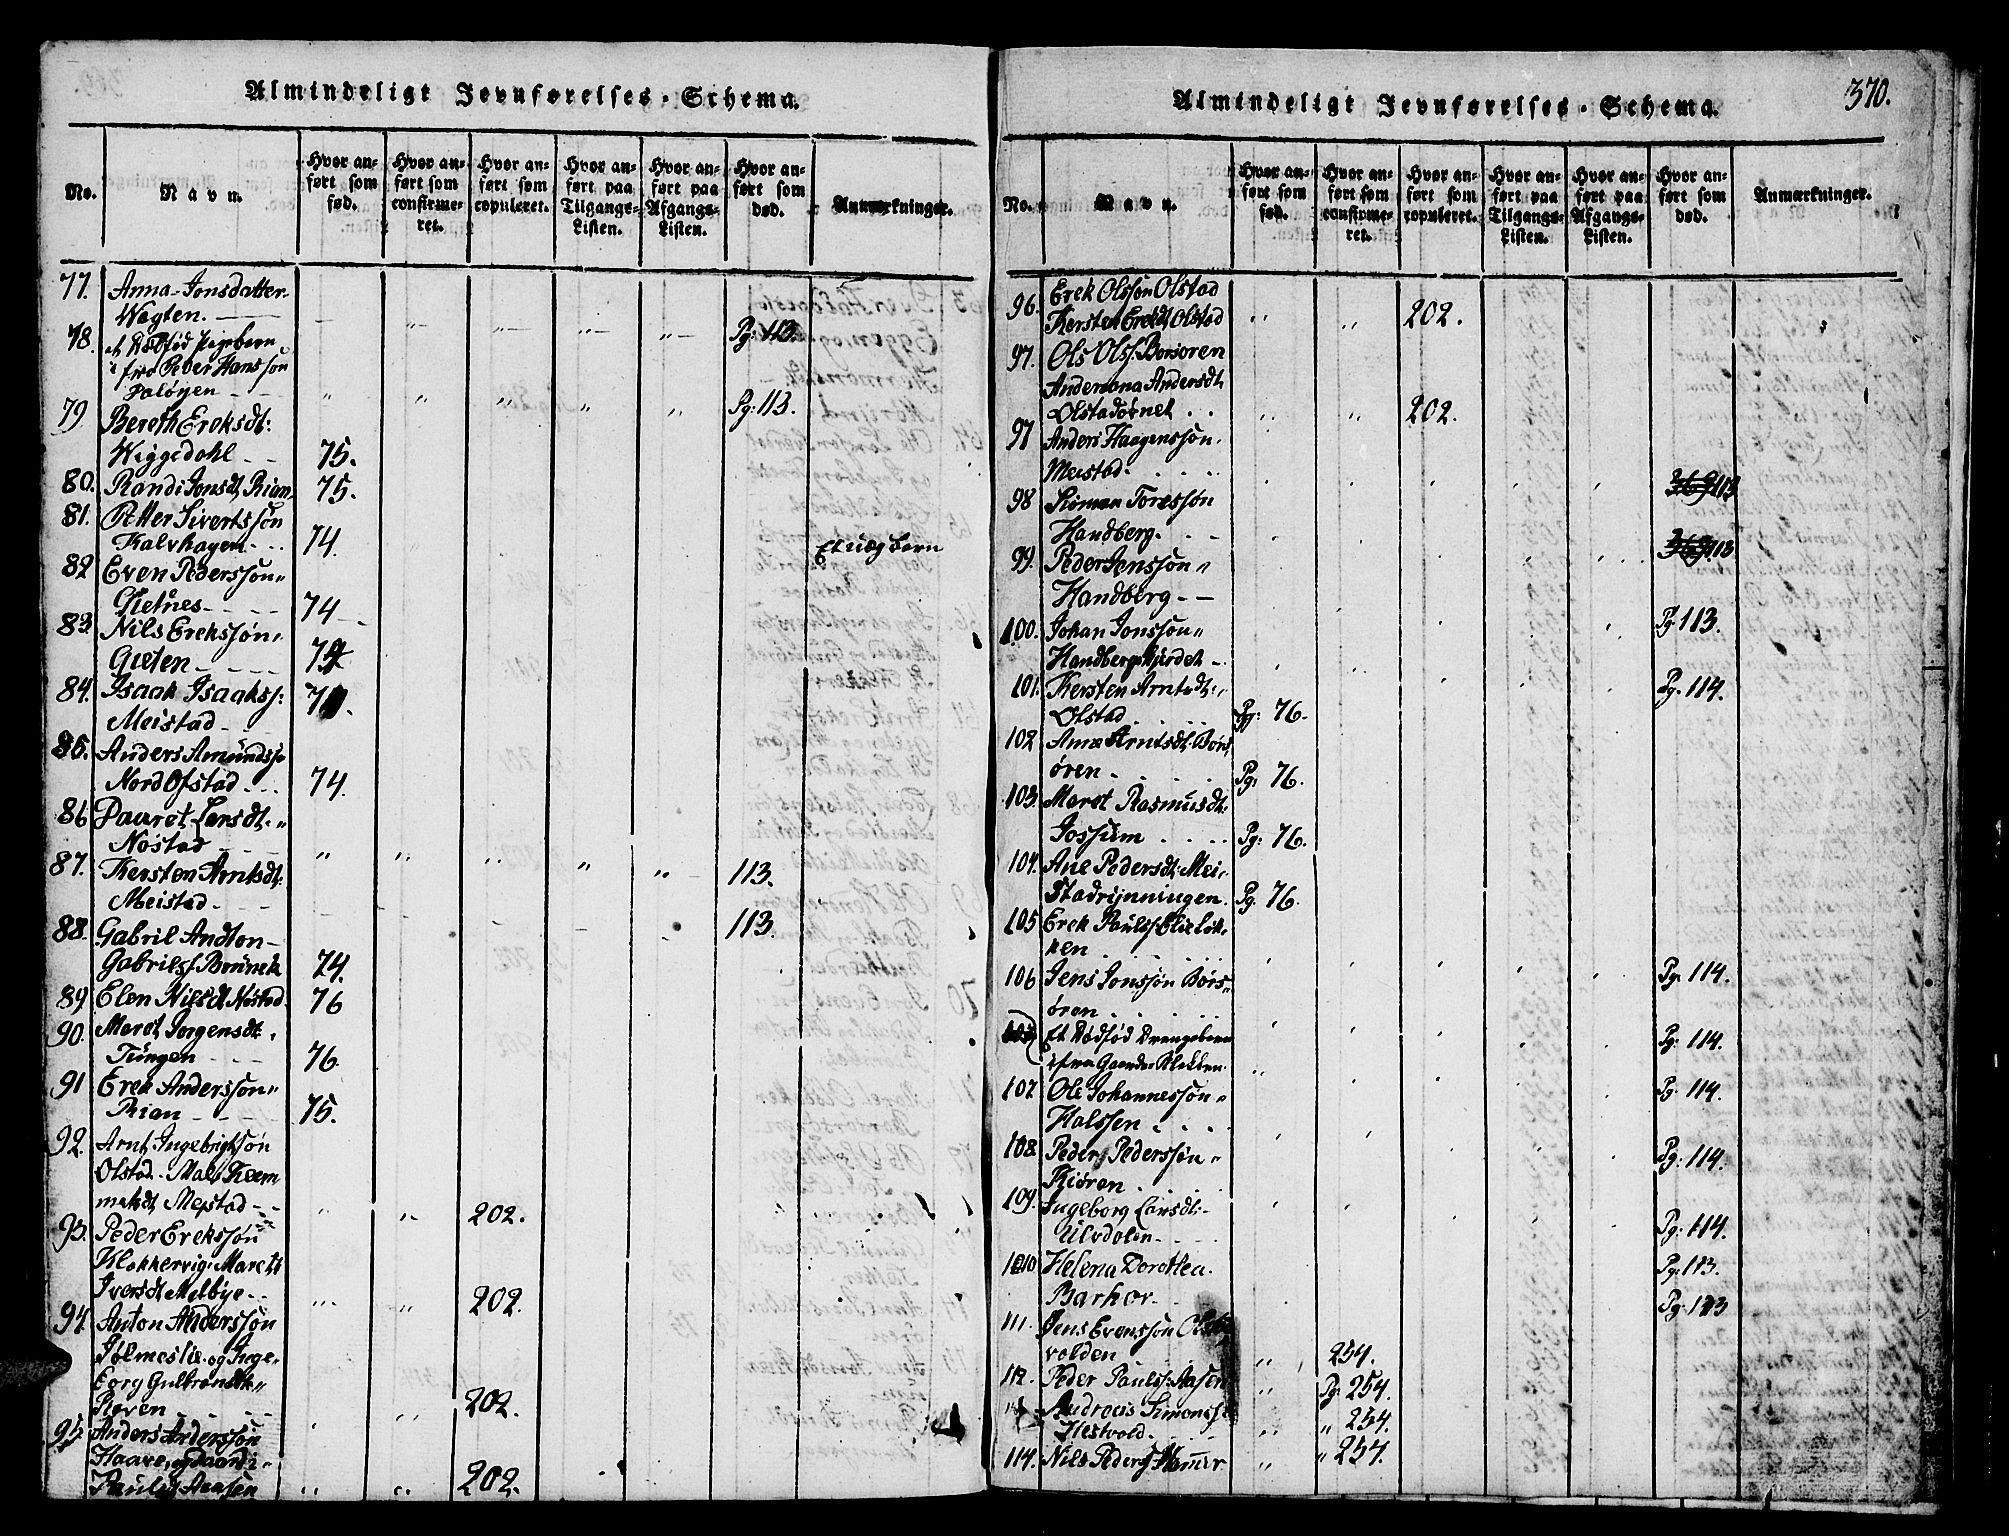 Almindeligt Jevnførelses-Schema.
No. Navn. Hvor anført som fød. Hvor anført som confirmeret. Hvor anført som copuleret. Hvor anført paa Tilgangs-Listen. Hvor anført paa Afgangs-Listen. Hvor anført som død. Anmærkninger.
77. Anna Jonsdatter
Wagten. Pg: 113.
78. et Dødfød Pigebarn
fra Peder Hanssøn
Saløyen Pg: 113.
79. Bereth Ereksdt:
Wiggedahl 75.
80. Randi Jonsdt. Rian 75.
81. Petter Sivertssøn
Kalvhagen 74. Et uæg barn
82 Even Pederssøn
Gietnes 74
83. Nils Erekssøn
Gieten 74
84. Isaak Isaakss:
Meistad 74.
85. Anders Amundss
Nord Ofstad 74.
86 Paaret Larsdt.
Nøstad 113.
87. Kersten Arntsdt:
Meistad 113.
88. Gabril Andton
Gabrilss. Brunek 74.
89 Elen Nilsdt Nøstad 76
90. Maret Jorgensdt.
Tungen 76.
91 Erek Anderssøn
Rian 75.
92. Arnt Ingebrigtsøn
Olstad. Mali
Meistad 202.
93. Peder Erekssøn
Klokkervig. Maret
Iversdt Melbye 202.
94. Anton Anderssøn
Jølmeslie og Inge-
borg Gulbrandsdt
Røven 202.
95 Anders Anderssøn
Haare, og
Pauls Aasen 202.
Almindeligt Jevnførelses-Schema. 370.
No. Navn. Hvor anført som fød. Hvor anført som confirmeret. Hvor anført som copuleret. Hvor anført paa Tilgangs-Listen. Hvor anført paa Afgangs-Listen. Hvor anført som død. Anmærkninger.
96. Erek Olssøn Olstad
Kersten Erekdt. Olstad 202.
97. Ols Olss. Borsøren
Anderiana Andersdt.
Olstadøinet 202.
97 Anders Haagenssøn
Meistad. 369 113
98 Simon Toressøn
Handberg. 369 113
99. Peder Jenssøn
Handberg Pg. 113.
100. Johan Jonssøn
Handbergshjerdet Pg. 114.
101. Kersten Arntsdt.
Olstad Pg: 76.
102 Ane Arntsdt. Børs
øren. Pg: 76.
103. Maret Rasmusdt.
Jossum Pg: 76.
104. Ane Pedersdt. Mei-
stadrynningen. Pg. 76.
105 Erek Paulss. Elieløk-
ken Pg: 114.
106 Jens Jonssøn Børs-
øren Pg: 114.
Et Dødfød Drengebarn
ifra Gaarden Klukken. Pg: 114.
107 Ole Johannessøn
Halssen Pg: 114.
108 Peder Pederssøn
Kiøren Pg: 114.
109. Ingeborg Larsdt.
Ulvdalen Pg: 113.
110 Helena Dorothea
Barhor. Pg: 113
111. Jens Evenssøn
volden 254.
112. Peder Paulss. Aasen Pg: 254.
Andreas Simonss
Hestvold. " 254.
114. Nils Peders. Hamer " 254.